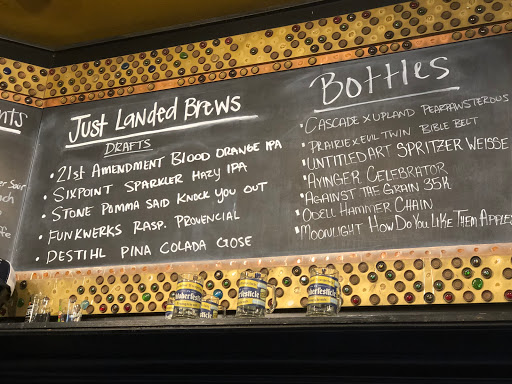 Just Landed Brews
DRAFTS
• 21st AMENDMENT BLOOD ORANGE IPA
• SIXPOINT SPARKLER HAZY IPA
• STONE POMMA SAID KNOCK YOU OUT
• FUNKWERKS RASP. PROVENCIAL
• DESTIHL PINA COLADA GOSE
Bottles
• CASCADE X UPLAND PEARPAWSTEROUS
• PRAIRIE X EVIL TWIN BIBLE BELT
• UNTITLED ART SPRITZER WEISSE
• AYINGER CELEBRATOR
• AGAINST THE GRAIN 35K
• ODELL HAMMER CHAIN
• MOONLIGHT HOW DO YOU LIKE THEM APPLES